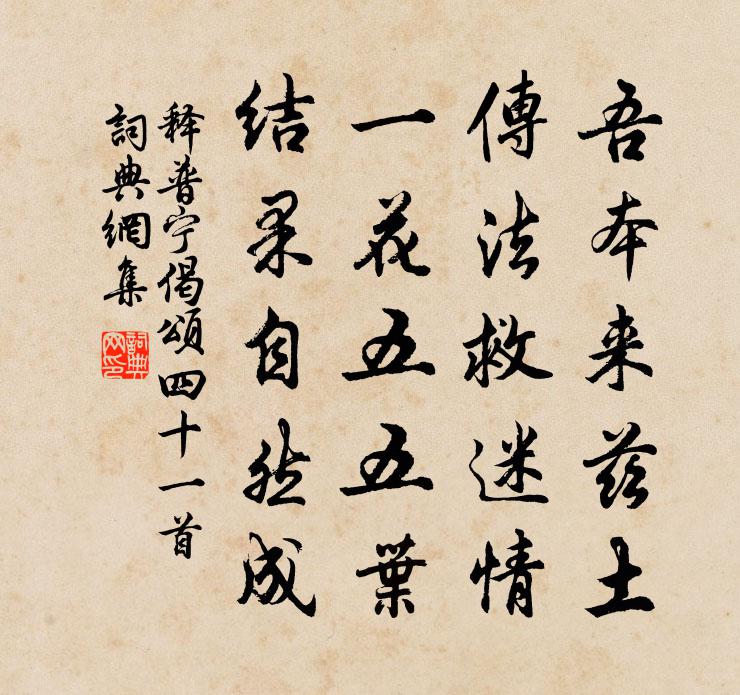 吾本来兹土
傳法救迷情
一花五五葉
结果自然成
释普宁偈頌四十一首
詞典網集
詞典網印